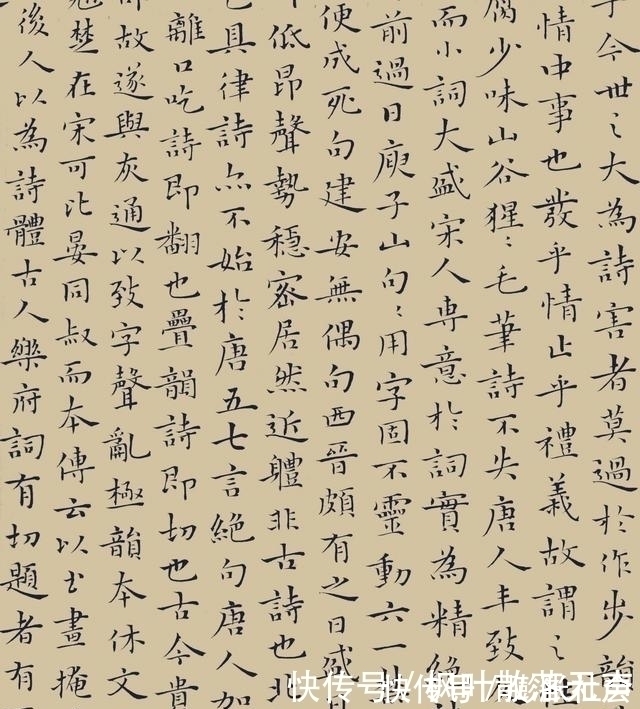 今世〻大為詩害者莫過於作步韻
情中事也發乎情止乎禮義故謂之
腐少味山谷猩〻毛筆詩不失唐人丰致
而小詞大盛宋人專意於詞實為精絕
前過日庾子山句〻用字固不靈動六一
便成死句建安無偶句西晉頗有之日盛
低昂聲勢穩密居然近體非古詩也
具律詩亦不始於唐五七言絕句唐人加
離口吃詩即翻也疊韻詩即切也古今貴
故遂與灰通以致字聲亂極韻本休文
楚在宋可比晏同叔而本傳云以書畫掩
後人以為詩體古人樂府詞有切題者有
快传号/